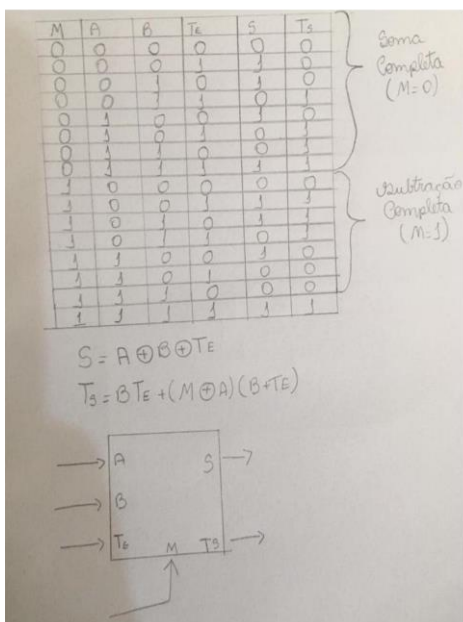 M A B TE S TS
0 0 0 0 0 0
0 0 0 1 1 0
0 0 1 0 1 0
0 0 1 1 0 1
0 1 0 0 1 0
0 1 0 1 0 1
0 1 1 0 0 1
0 1 1 1 1 1
1 0 0 0 0 0
1 0 0 1 1 1
1 0 1 0 1 1
1 0 1 1 0 1
1 1 0 0 1 0
1 1 0 1 0 0
1 1 1 0 0 0
1 1 1 1 1 1
Soma
Completa
(M=0)
Subtração
Completa
(M=1)
S = A ⊕ B ⊕ TE
TS = B TE + (M ⊕ A) (B + TE)
A S
B
TE M TS